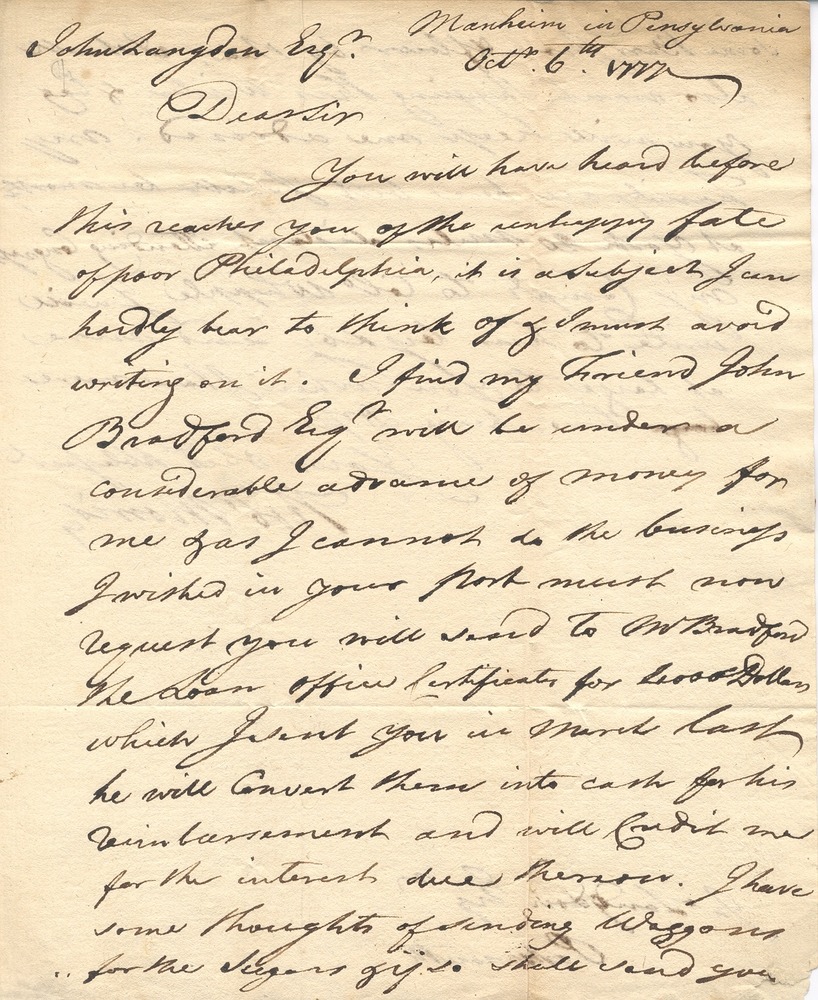 Manheim in Pensylvania
John Langdon Esqr.
Octr. 6th. 1777
Dear sir
You will have heard before
this reaches you of the unhappy fate
of poor Philadelphia, it is a subject I can
hardly bear to think of & I must avoid
writing on it. I find my Friend John
Bradford Esqr will be under a
considerable advance of money for
me & as I cannot do the business
I wished in your Port must now
request you will send to Mr Bradford
the Loan Office Certificates for Dollars
which I sent you in March last
he will Convert them into cash for his
reimbursement and will Credit me
for the interest due thereon. I have
some thoughts of sending Waggons
for the Sugars & if so shall send you